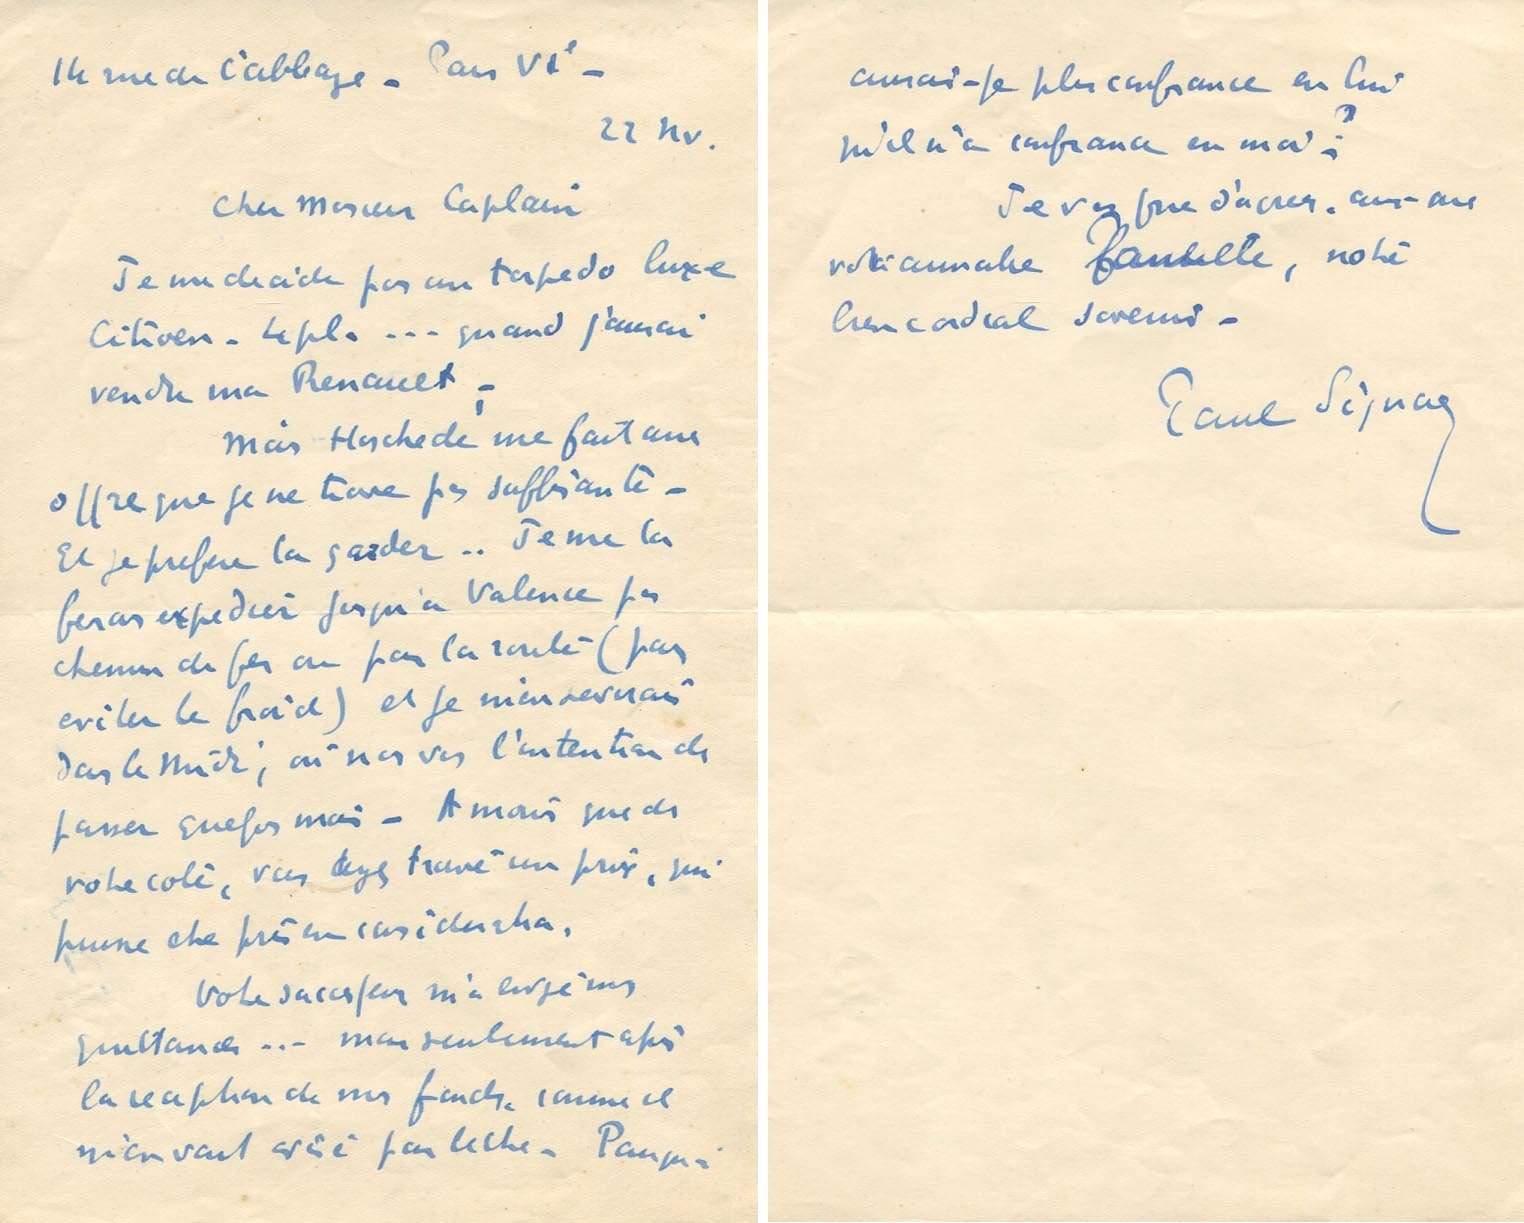 14 rue de l'abbaye – Paris VIe –
22 Nov.
Cher Monsieur Caplain
Je me decide pour un torpedo luxe
Citroen – 4 pl. --- quand j'aurai
vendu ma Renault –
Mais Hoschedé me fait une
offre que je ne trouve pas suffisante –
Et je prefere la garder .. Je me la
ferais expedier jusqu'a Valence par
chemin de fer ou par la route (pour
eviter le froid) et je m'en servirais
dans le Midi, où nous avons l'intention de
passer quelques mois – A moins que de
votre coté, vous ayez trouvé un prix, qui
puisse etre pris en consideration.
Votre successeur m'a envoyé mes
quittances --- mais seulement après
la reception de mes fonds, comme il
m'en vait avisé par lettre – Pourquoi
aurais-je plus confiance en lui
qu'il n'a confiance en moi ?
Je vous prie d'agreer, ainsi que
votre aimable famille, notre
bien cordial souvenir –
Paul Signac